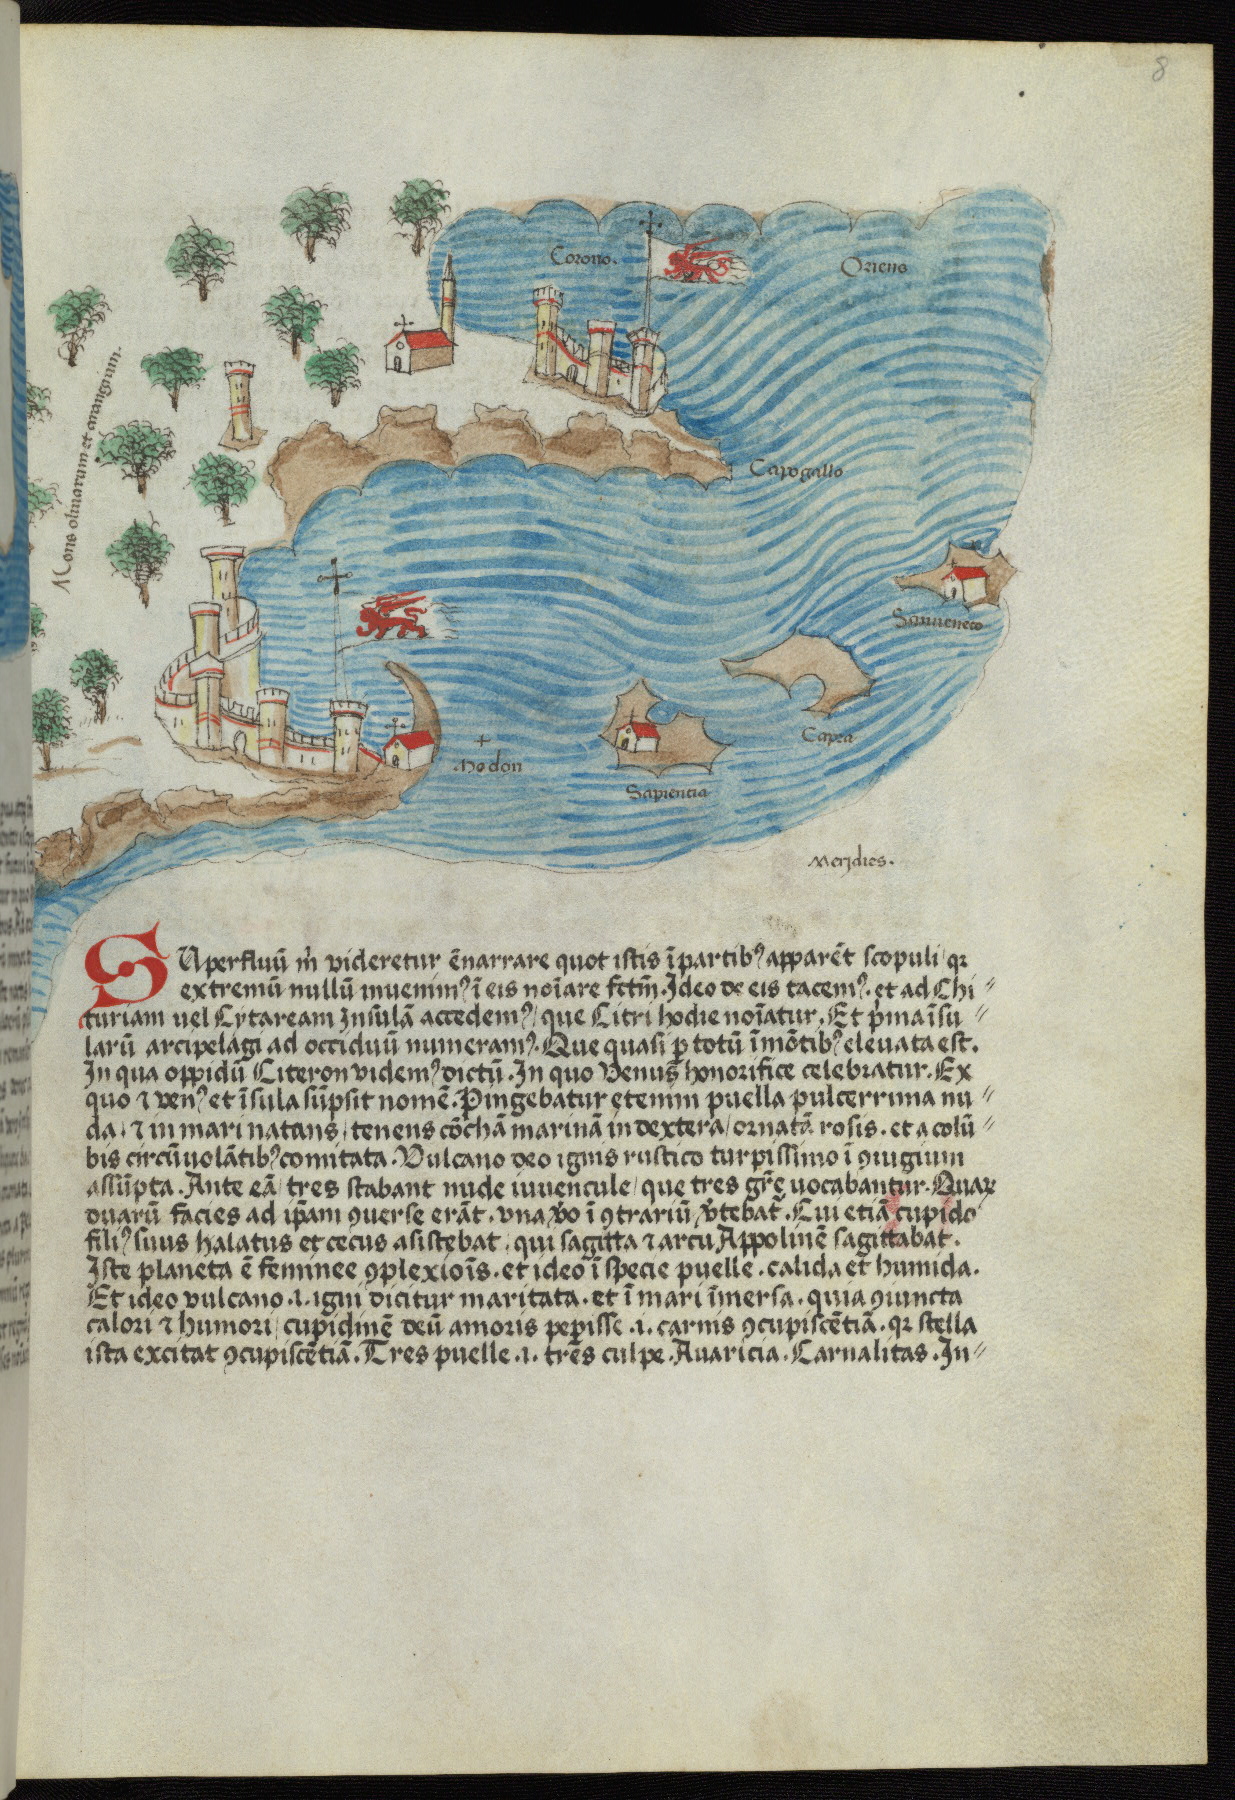 8
Corono.
Oriens
Mons olinarum et arangorum.
Capogallo
Sanveneco
Capra
+
Modon
Sapiencia
Meridies.
SUperfluū m̄ videretur ēnarrare quot istis ī partibꝰ apparēt scopuli / qꝛ
extremū nullū invenimꝰ ī eis noīare fctm̄. Ideo de eis tacemꝰ. et ad Chi〃
turiam vel Cytaream Insulā accedemꝰ / que Citri hodie noīatur. Et p̄ma īsu〃
larū arcipelagi ad occiduū numeramꝰ. Que quasi p totū ī mōtibꝰ elevata est.
In qua oppidū Citeron videmꝰ dictū. In quo Venus honorifice celebratur. Ex
quo ⁊ venꝰ et īsula sūpsit nomē. Pingebatur etenim puella pulcerrima nu〃
da / ⁊ in mari natans / tenens cōchā marinā in dextera / ornatā rosis. et a colū〃
bis circūvolātibꝰ comitata. Vulcano deo ignis rustico turpissimo ī ꝯiugium
assūpta. Ante eā / tres stabant nude iuvencule / que tres gr̄e vocabantur. Quaꝝ
duarū facies ad ip̄am ꝯverse erāt. una v̊o ī ꝯtrariū v̄tebat̄. Cui etiā cupido
filiꝰ suus halatus et cecus asistebat / qui sagitta ⁊ arcu Appolinē sagittabat.
Iste planeta ē feminee ꝯplexiois. et ideo ī specie puelle. calida et humida.
Et ideo vulcano .i. igni dicitur maritata. et ī mari īmersa. quia ꝯiuncta
calori ⁊ humori / cupidinē deū amoris peperisse .i. carnis ꝯcupiscētiā. qꝛ stella
ista excitat ꝯcupiscētiā. Tres puelle .i. tres culpe. Avaricia. Carnalitas. In〃